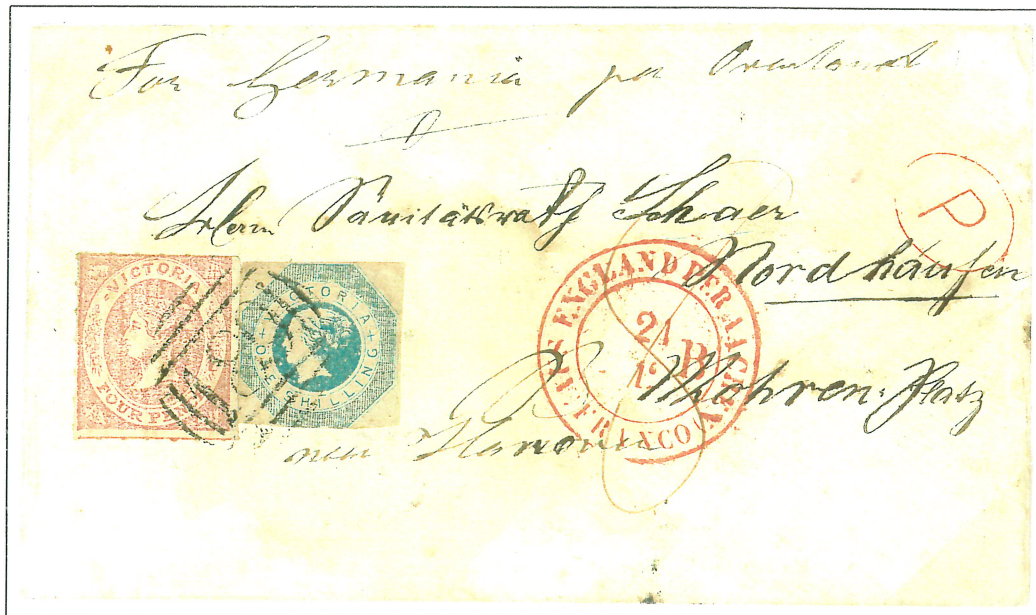 For Germania per Overland
Herrn Sänitätsrath Schaer
Nordhausen
P
VICTORIA
FOUR
VICTORIA
ONE SHILLING
AUS ENGLAND PER AACHEN
FRANCO
21
12
B
Mohren-Platz
near Hanover